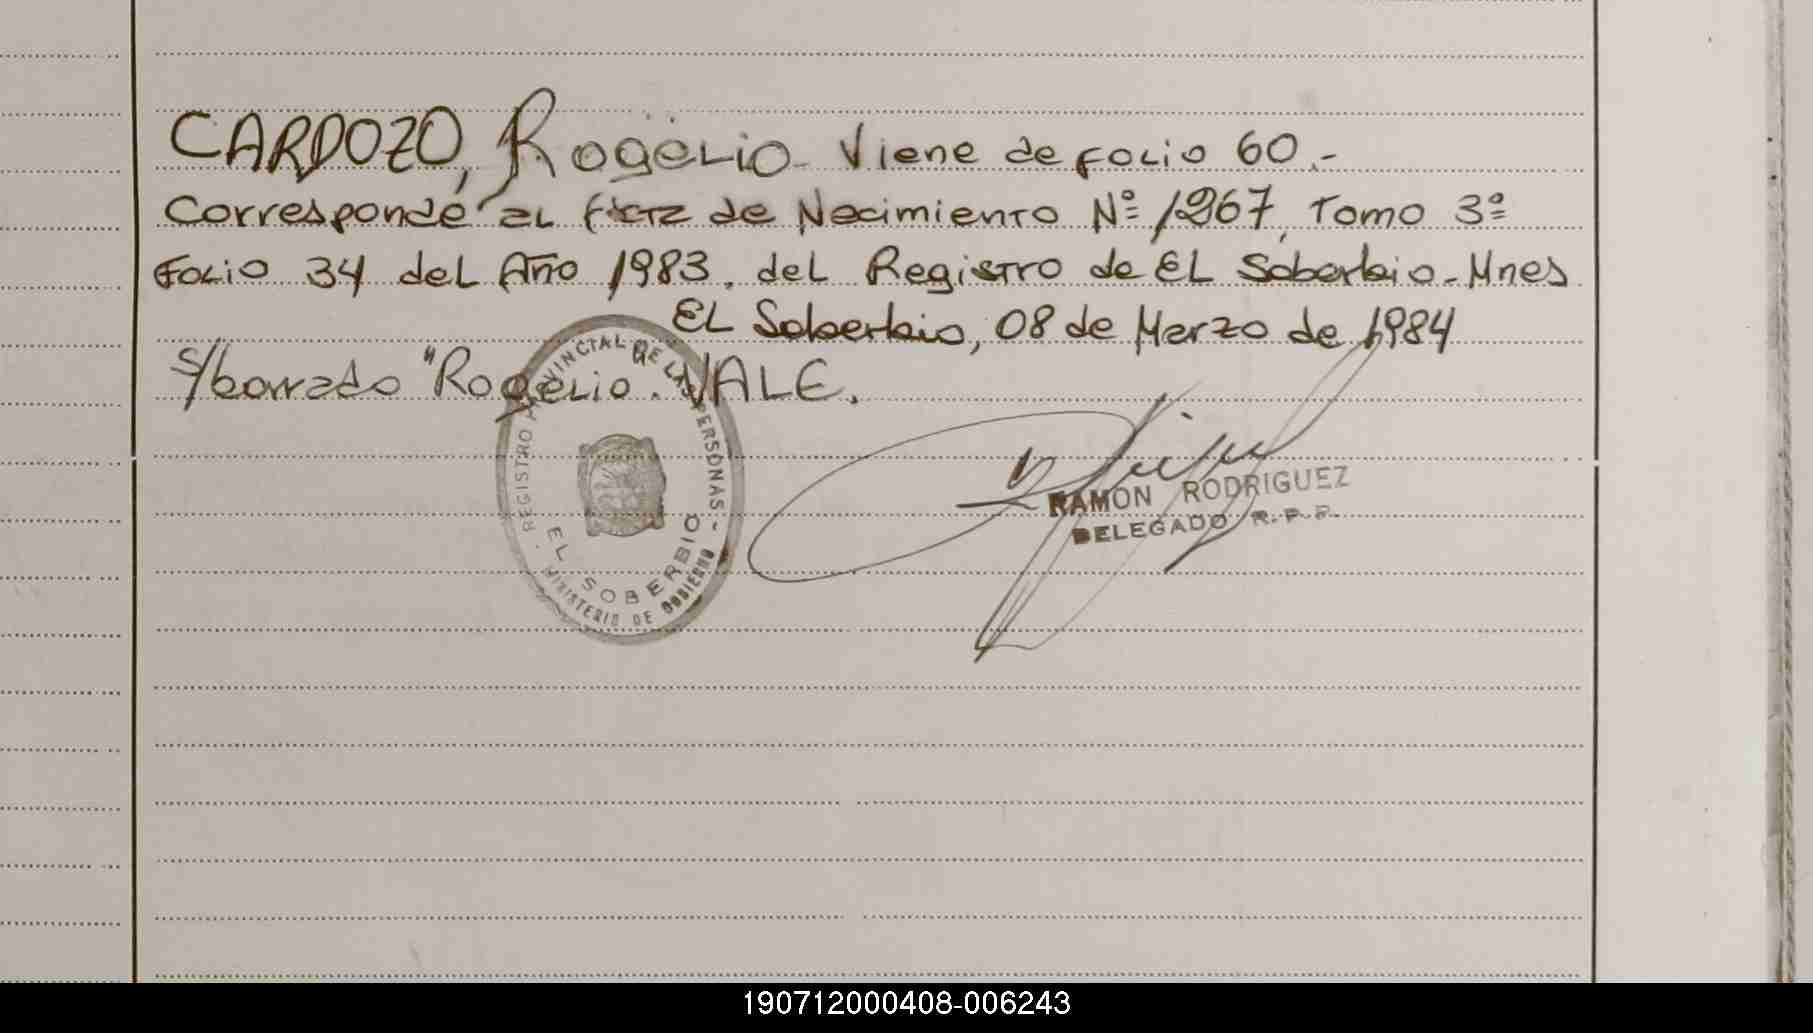 CARDOZO, Rogelio - Viene de folio 60.-
Corresponde al Acta de Nacimiento Nº 1267, Tomo 3º
Folio 34 del Año 1983, del Registro de El Soberbio - Mnes
El Soberbio, 08 de Marzo de 1984
s/borrado "Rogelio". VALE.
REGISTRO PROVINCIAL DE LAS PERSONAS -
EL SOBERBIO
MINISTERIO DE GOBIERNO
RAMON RODRIGUEZ
DELEGADO R.P.P.
190712000408-006243